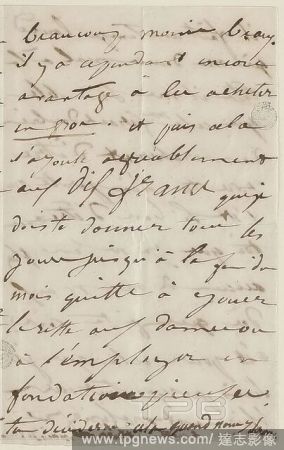 beaucoup moins beau.
il y a cependant encore
avantage à les acheter
en gros. et puis cela
s'ajoute agréablement
aux dix francs que je
dois te donner tous les
jours jusqu'à la fin du
mois quitte à jouer
le reste aux dames ou
à l'employer en
fondations pieuses
tu décideras
quand nous
TPG
www.tpgnews.com / 達志影像